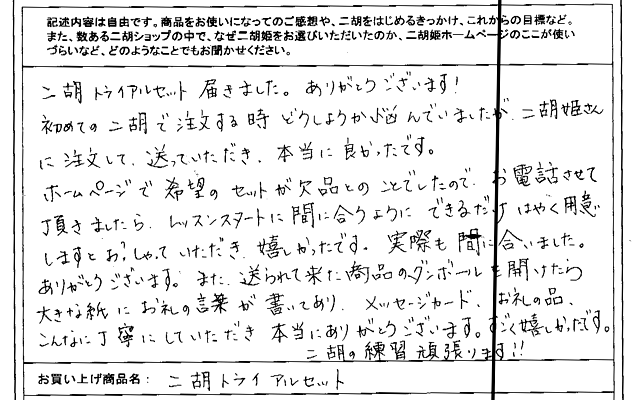 記述内容は自由です。商品をお使いになってのご感想や、二胡をはじめるきっかけ、これからの目標など。
また、数ある二胡ショップの中で、なぜ二胡姫をお選びいただいたのか、二胡姫ホームページのここが使い
づらいなど、どのようなことでもお聞かせください。
二胡トライアルセット 届きました。ありがとうございます!
初めての二胡で注文する時 どうしようか悩んでいましたが、二胡姫さん
に注文して、送っていただき、本当に良かったです。
ホームページで希望のセットが欠品とのことでしたので、お電話させて
頂きましたら、レッスンスタートに間に合うように できるだけはやく用意
しますとおっしゃっていただき、嬉しかったです。実際も間に合いました。
ありがとうございます。また、送られて来た商品のダンボールを開けたら
大きな紙にお礼の言葉が書いてあり、メッセージカード、お礼の品、
こんなに丁寧にしていただき 本当にありがとうございます。すごく嬉しかったです。
二胡の練習頑張ります!!
お買い上げ商品名: 二胡トライアルセット